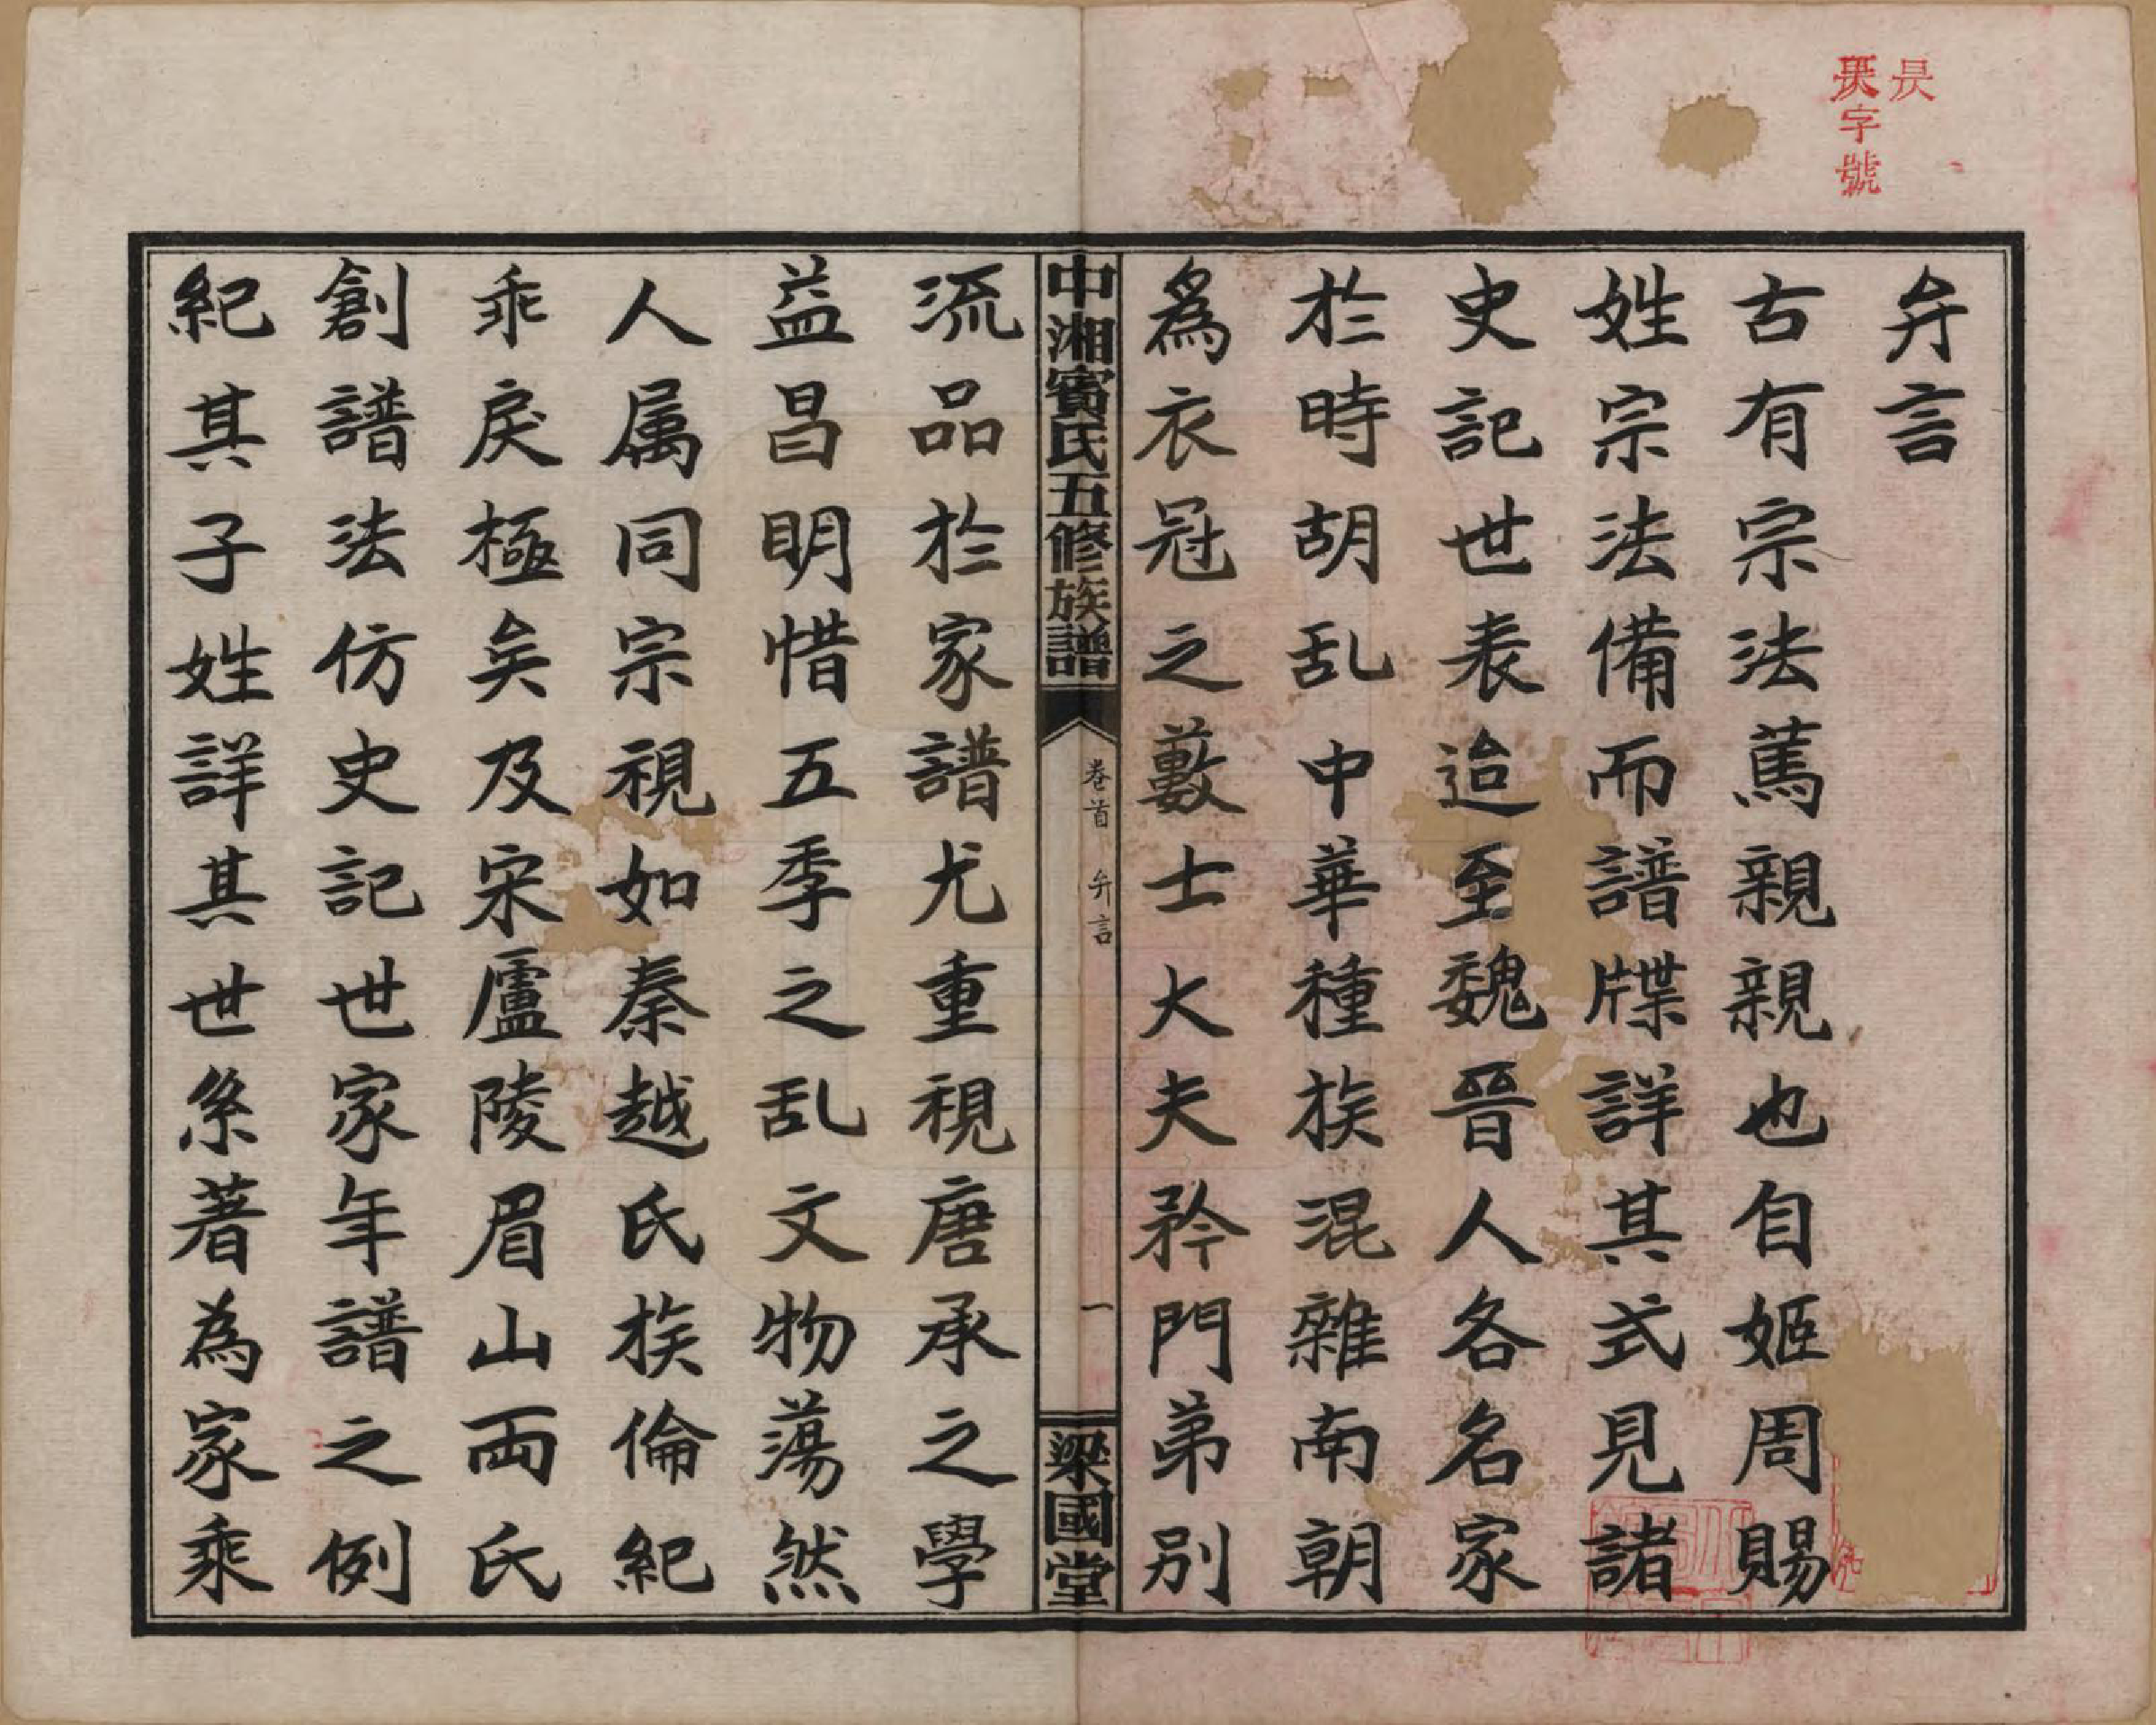 昃
昃字號
弁言
古有宗法篤親親也自姬周賜
姓宗法備而譜牒詳其式見諸
史記世表迨至魏晉人各名家
於時胡乱中華種族混雜南朝
為衣冠之藪士大夫矜門弟別
中湘賓氏五修族譜
卷首 弁言
一
梁國堂
流品於家譜尤重視唐承之學
益昌明惜五季之乱文物蕩然
人属同宗視如秦越氏族倫紀
乖戾極矣及宋廬陵眉山両氏
創譜法仿史記世家年譜之例
紀其子姓詳其世系著為家乘